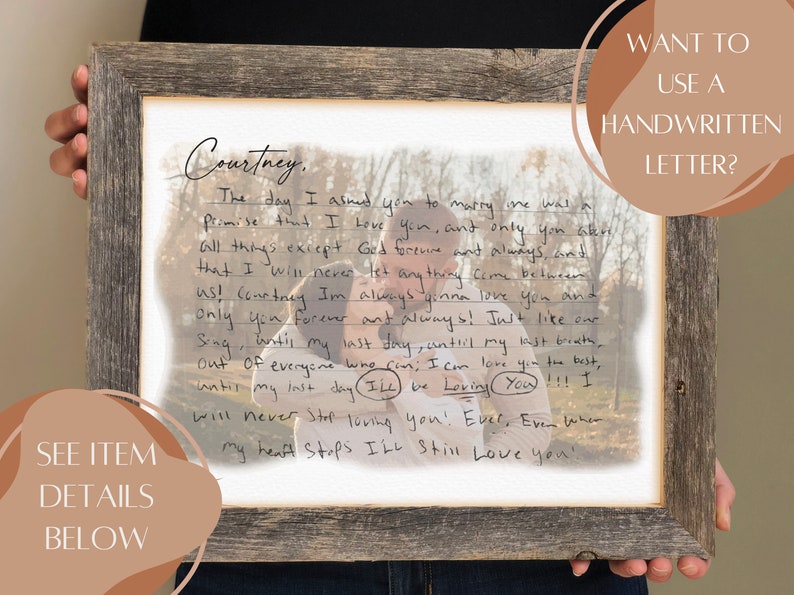 WANT TO
USE A
HANDWRITTEN
LETTER?
Courtney,
The day I asked you to marry me was a
promise that I Love you, and only you above
all things except God forever and always, and
that I will never let anything come between
us! Courtney Im always gonna love you and
only you forever and always! Just like our
song, until my last day, until my last breath,
out of everyone who can, I can love you the best,
until my last day I'll be Loving You!!! I
will never stop loving you! Ever. Even when
my heart stops I'll still Love you!
SEE ITEM
DETAILS
BELOW